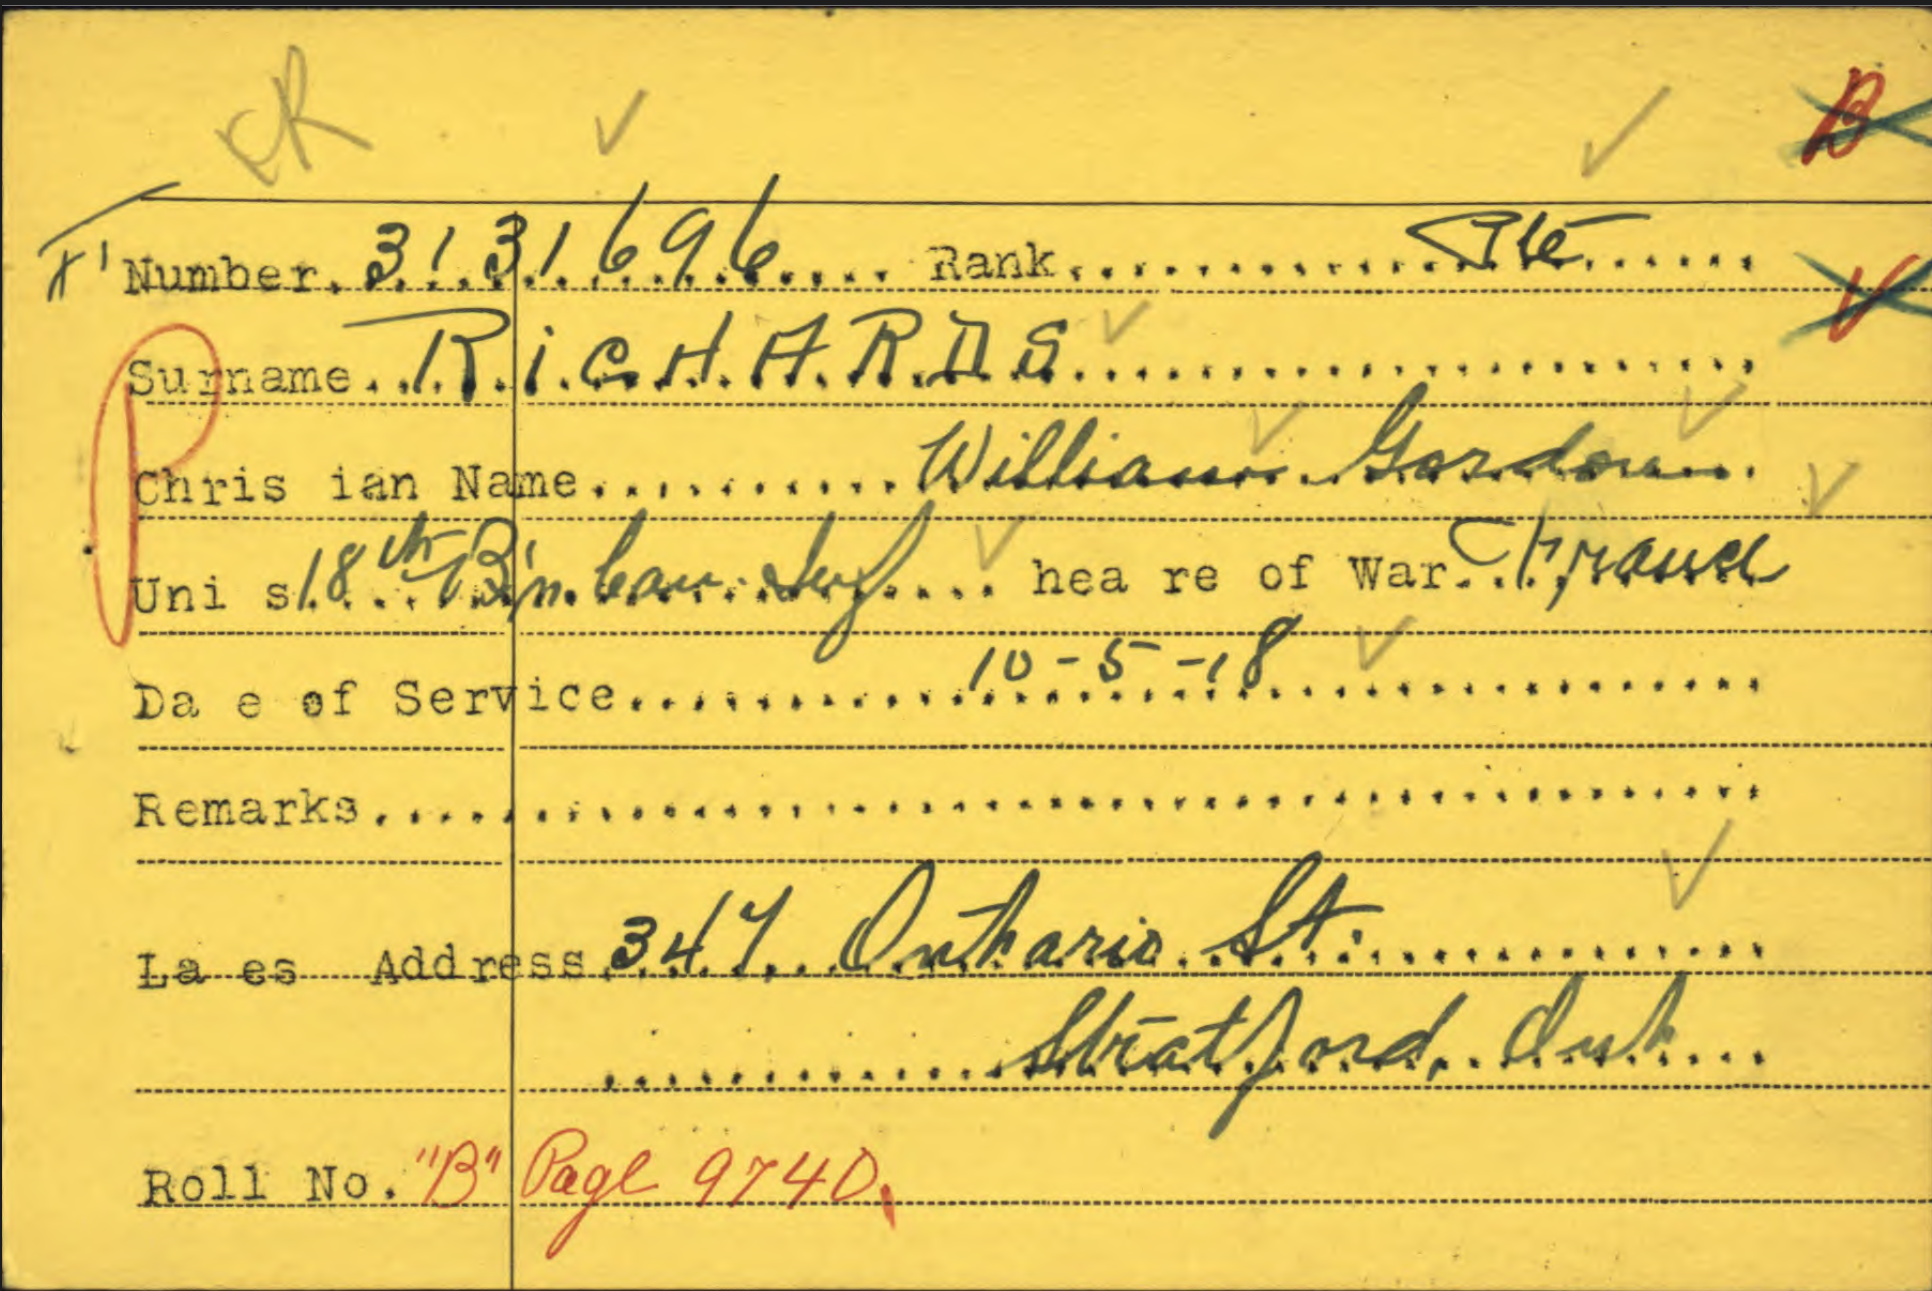 CR
B
Number. 3131696 Rank. Pte
V
Surname. RiCHARDS
P
Chris ian Name. William Gordon
Uni s 18th B'n. Can. Inf hea re of War. France
Da e of Service. 10-5-18
Remarks.
La es Address. 347 Ontario St.
Stratford, Ont
Roll No. "B" Page 9740.